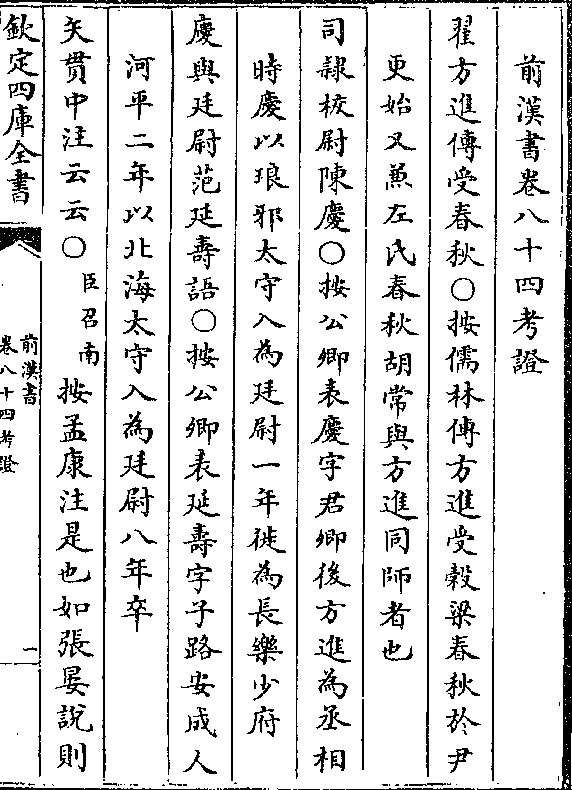 前漢書卷八十四考證
翟方進傳受春秋〇按儒林傳方進受榖梁春秋於尹
更始又兼左氏春秋胡常與方進同師者也
司隷校尉陳慶〇按公卿表慶字君卿後方進為丞相
時慶以琅邪太守入為廷尉一年徙為長樂少府
慶與廷尉范延壽語〇按公卿表延壽字子路安成人
河平二年以北海太守入為廷尉八年卒
矢貫中注云云〇臣召南按孟康注是也如張晏說則
欽定四庫全書
前漢書
卷八十四考證
一